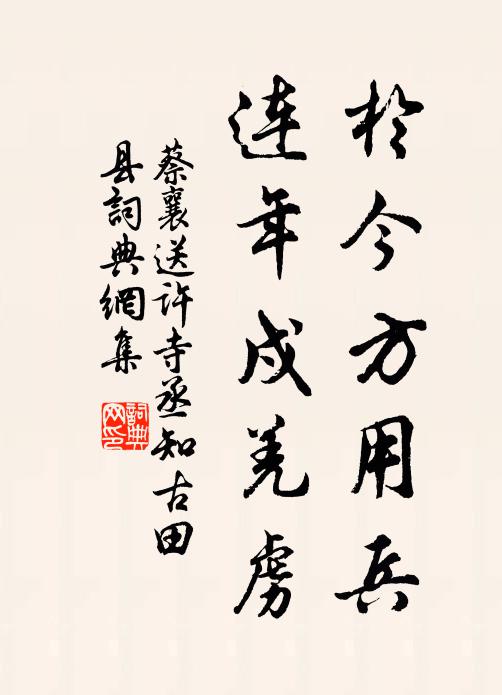 於今方用兵
连年戍羌虏
蔡襄送许寺丞知古田
县詞典網集
詞典
网印